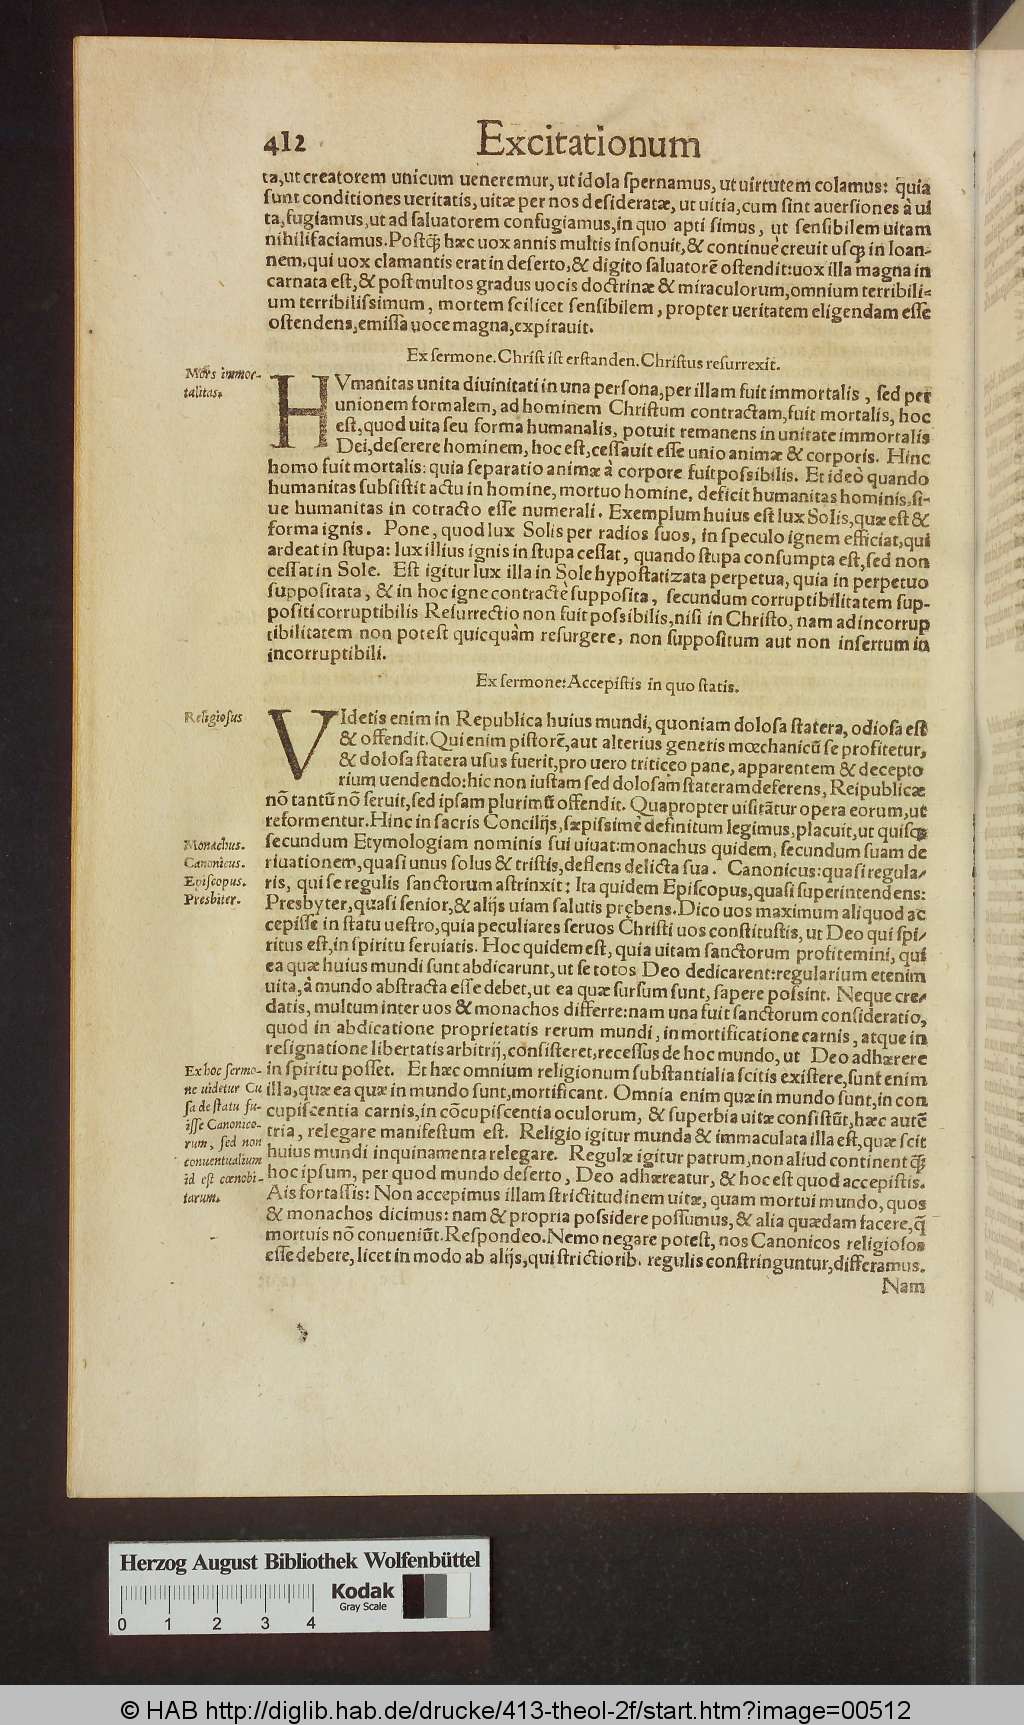 412 Excitationum
ta,ut creatorem unicum ueneremur, ut idola spernamus, ut uirtutem colamus: quia
sunt conditiones ueritatis, uitæ per nos desideratæ, ut uitia, cum sint auersiones à ui
ta, fugiamus, ut ad saluatorem confugiamus, in quo apti simus, ut sensibilem uitam
nihilifaciamus. Postq̃ hæc uox annis multis insonuit, & continuè creuit usq; in Ioan-
nem, qui uox clamantis erat in deserto, & digito saluatorẽ ostendit: uox illa magna in
carnata est, & post multos gradus uocis doctrinæ & miraculorum, omnium terribili-
um terribilissimum, mortem scilicet sensibilem, propter ueritatem eligendam esse
ostendens, emissa uoce magna, expirauit.
Ex sermone. Christ ist erstanden. Christus resurrexit.
Mors immor-
talitas.
HVmanitas unita diuinitati in una persona, per illam fuit immortalis, sed per
unionem formalem, ad hominem Christum contractam, fuit mortalis, hoc
est, quod uita seu forma humanalis, potuit remanens in unitate immortalis
Dei, deserere hominem, hoc est, cessauit esse unio animæ & corporis. Hinc
homo fuit mortalis: quia separatio animæ à corpore fuit possibilis. Et ideò quando
humanitas subsistit actu in homine, mortuo homine, deficit humanitas hominis, si-
ue humanitas in cotracto esse numerali. Exemplum huius est lux Solis, quæ est &
forma ignis. Pone, quod lux Solis per radios suos, in speculo ignem efficiat, qui
ardeat in stupa: lux illius ignis in stupa cessat, quando stupa consumpta est, sed non
cessat in Sole. Est igitur lux illa in Sole hypostatizata perpetua, quia in perpetuo
suppositata, & in hoc igne contractè supposita, secundum corruptibilitatem sup-
positi corruptibilis Resurrectio non fuit possibilis, nisi in Christo, nam ad incorrup
tibilitatem non potest quicquàm resurgere, non suppositum aut non insertum in
incorruptibili.
Ex sermone: Accepistis in quo statis.
Religiosus
VIdetis enim in Republica huius mundi, quoniam dolosa statera, odiosa est
& offendit. Qui enim pistorẽ, aut alterius generis mœchanicũ se profitetur,
& dolosa statera usus fuerit, pro uero triticeo pane, apparentem & decepto
rium uendendo: hic non iustam sed dolosam stateram deferens, Reipublicæ
nõ tantũ nõ seruit, sed ipsam plurimũ offendit. Quapropter uisitãtur opera eorum, ut
reformentur. Hinc in sacris Concilijs, sæpissimè definitum legimus, placuit, ut quisq;
secundum Etymologiam nominis sui uiuat: monachus quidem, secundum suam de
riuationem, quasi unus solus & tristis, deflens delicta sua. Canonicus: quasi regula-
ris, qui se regulis sanctorum astrinxit: Ita quidem Episcopus, quasi superintendens:
Presbyter, quasi senior, & alijs uiam salutis prębens. Dico uos maximum aliquod ac
cepisse in statu uestro, quia peculiares seruos Christi uos constituistis, ut Deo qui spi-
ritus est, in spiritu seruiatis. Hoc quidem est, quia uitam sanctorum profitemini, qui
ea quæ huius mundi sunt abdicarunt, ut se totos Deo dedicarent: regularium etenim
uita, à mundo abstracta esse debet, ut ea quæ sursum sunt, sapere possint. Neque cre-
datis, multum inter uos & monachos differre: nam una fuit sanctorum consideratio,
quod in abdicatione proprietatis rerum mundi, in mortificatione carnis, atque in
resignatione libertatis arbitrij, consisteret, recessus de hoc mundo, ut Deo adhærere
in spiritu posset. Et hæc omnium religionum substantialia scitis existere, sunt enim
illa, quæ ea quæ in mundo sunt, mortificant. Omnia enim quæ in mundo sunt, in con
cupiscentia carnis, in cõcupiscentia oculorum, & superbia uitæ consistũt, hæc autẽ
tria, relegare manifestum est. Religio igitur munda & immaculata illa est, quæ scit
huius mundi inquinamenta relegare. Regulæ igitur patrum, non aliud continent q̃
hoc ipsum, per quod mundo deserto, Deo adhæreatur, & hoc est quod accepistis.
Ais fortassis: Non accepimus illam strictitudinem uitæ, quam mortui mundo, quos
& monachos dicimus: nam & propria possidere possumus, & alia quædam facere, q̃
mortuis nõ conueniũt. Respondeo. Nemo negare potest, nos Canonicos religiosos
esse debere, licet in modo ab alijs, qui strictiorib. regulis constringuntur, differamus.
Nam
Monachus.
Canonicus.
Episcopus.
Presbiter.
Ex hoc sermo-
ne uidetur Cu
sa de statu fu-
isse Canonico-
rum, sed non
conuentualium
id est cœnobi-
tarum.
Herzog August Bibliothek Wolfenbüttel
Kodak
Gray Scale
0 1 2 3 4
© HAB http://diglib.hab.de/drucke/413-theol-2f/start.htm?image=00512